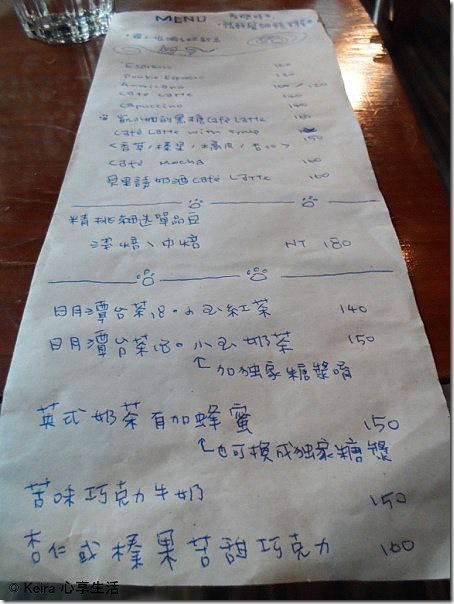 MENU
Espresso
Double Espresso 120
Americano 100 / 120
Café Latte 140
Capuccino 140
黑糖 Café Latte 160
Café Latte with syrup 150
Café Mocha 160
貝里詩奶酒 Café Latte 160
精挑細選單品豆
淺焙、中焙 NT 180
日月潭台茶18。小玉紅茶 140
日月潭台茶18。小玉奶茶 150
加独家糖漿唷
英式奶茶有加蜂蜜 150
也可換成独家糖漿
苦味巧克力牛奶 150
杏仁或榛果苦甜巧克力 160
© Keira 心享生活